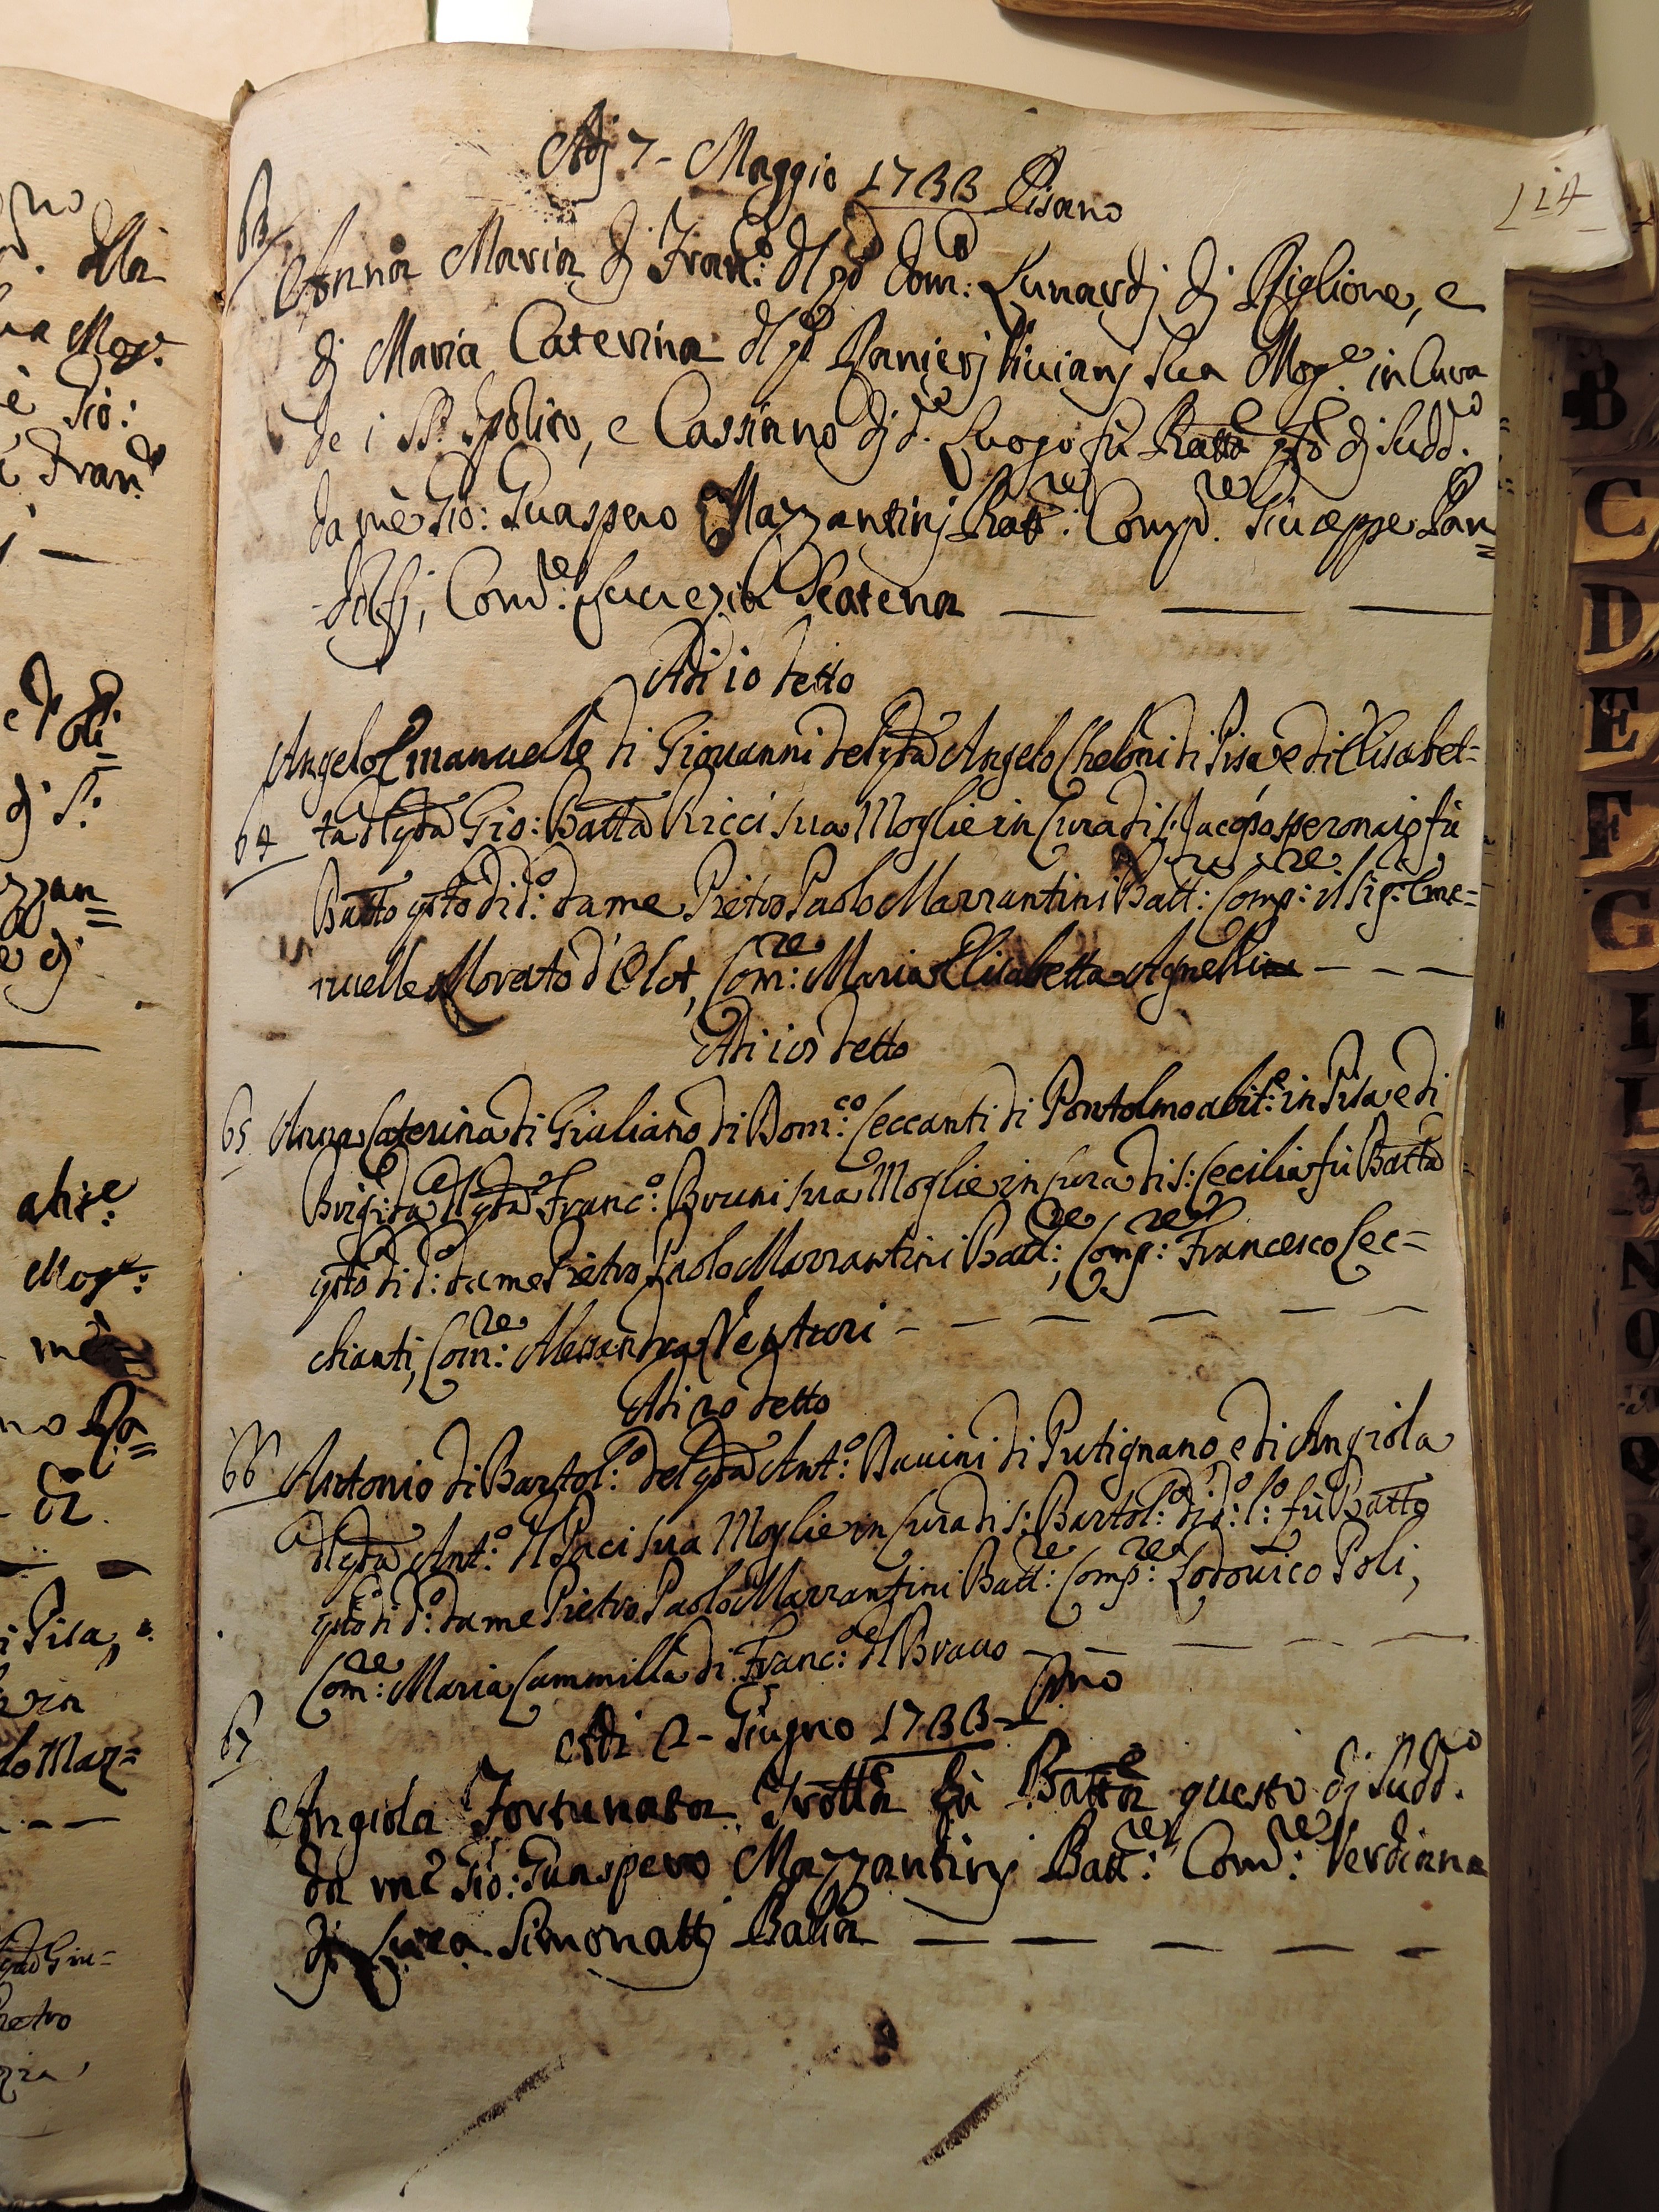 114
Adj 7 - Maggio 1733 Pisano
63 Anna Maria dj Fran:co dl qd Dom:co Lunardj dj Riglione, e
dj Maria Caterina dl qd Ranierj Viuianj sua Mog:e in Cura
de i SS. Ipolito, e Cassiano dj d.o Luogo fù Batta qsto dj sudd.o
da mè Gio: Guaspero Mazzantinj Batt:re Comp.re Giuseppe Pan=
dolfj, Com:re Lucrezia Scatena
Adi 10 detto
Angelo Emanuelle di Giouanni del qdam Angelo Cheloni di Pisa e di Elisabet=
64 ta dl qdam Gio: Batta Ricci sua Moglie in Cura di S: Jacopo speronaio fù
Batto qsto di d:o da me Pietro Paolo Mazzantini Batt:re Comp:re il Sig:re Eme=
ruelle Morato d'Olot, Com:re Maria Elisabetta Agnelli
Adi 10 detto
65 Anna Caterina di Giuliano di Dom:co Ceccanti di Pontolmo abit:e in Pisa e di
Brigida dl qdam Franc:o Bruni sua Moglie in Cura di S: Cecilia fù Batta
qsto di d:o da me Pietro Paolo Mazzantini Batt:re, Comp:re Francesco Cec=
chanti, Com:re Alessandra Venturi
Adi 20 detto
66 Antonio di Bartol:o del qdam Ant:o Bauini di Putignano e di Angiola
dl qdam Ant:o dl Paci sua Moglie in Cura di S: Bartol:o di d:o l:o fù Batto
qsto di d:o da me Pietro Paolo Mazzantini Batt:re Comp:re Lodouico Poli,
Com:re Maria Cammilla di Franc:o dl Brauo
67 Adi 2 - Giugno 1733 - Pno
Angiola Fortunata Trotta fù Batta questo dj sudd.o
da mè Gio: Guaspero Mazzantinj Batt:re Com:re Verdiana
dj Luca Simonattj Balia